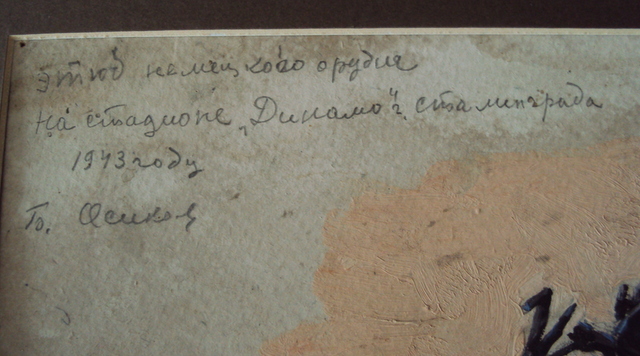 Этюд немецкого орудия
на стадионе „Динамо" г. Сталинграда
1943 году
Осипов